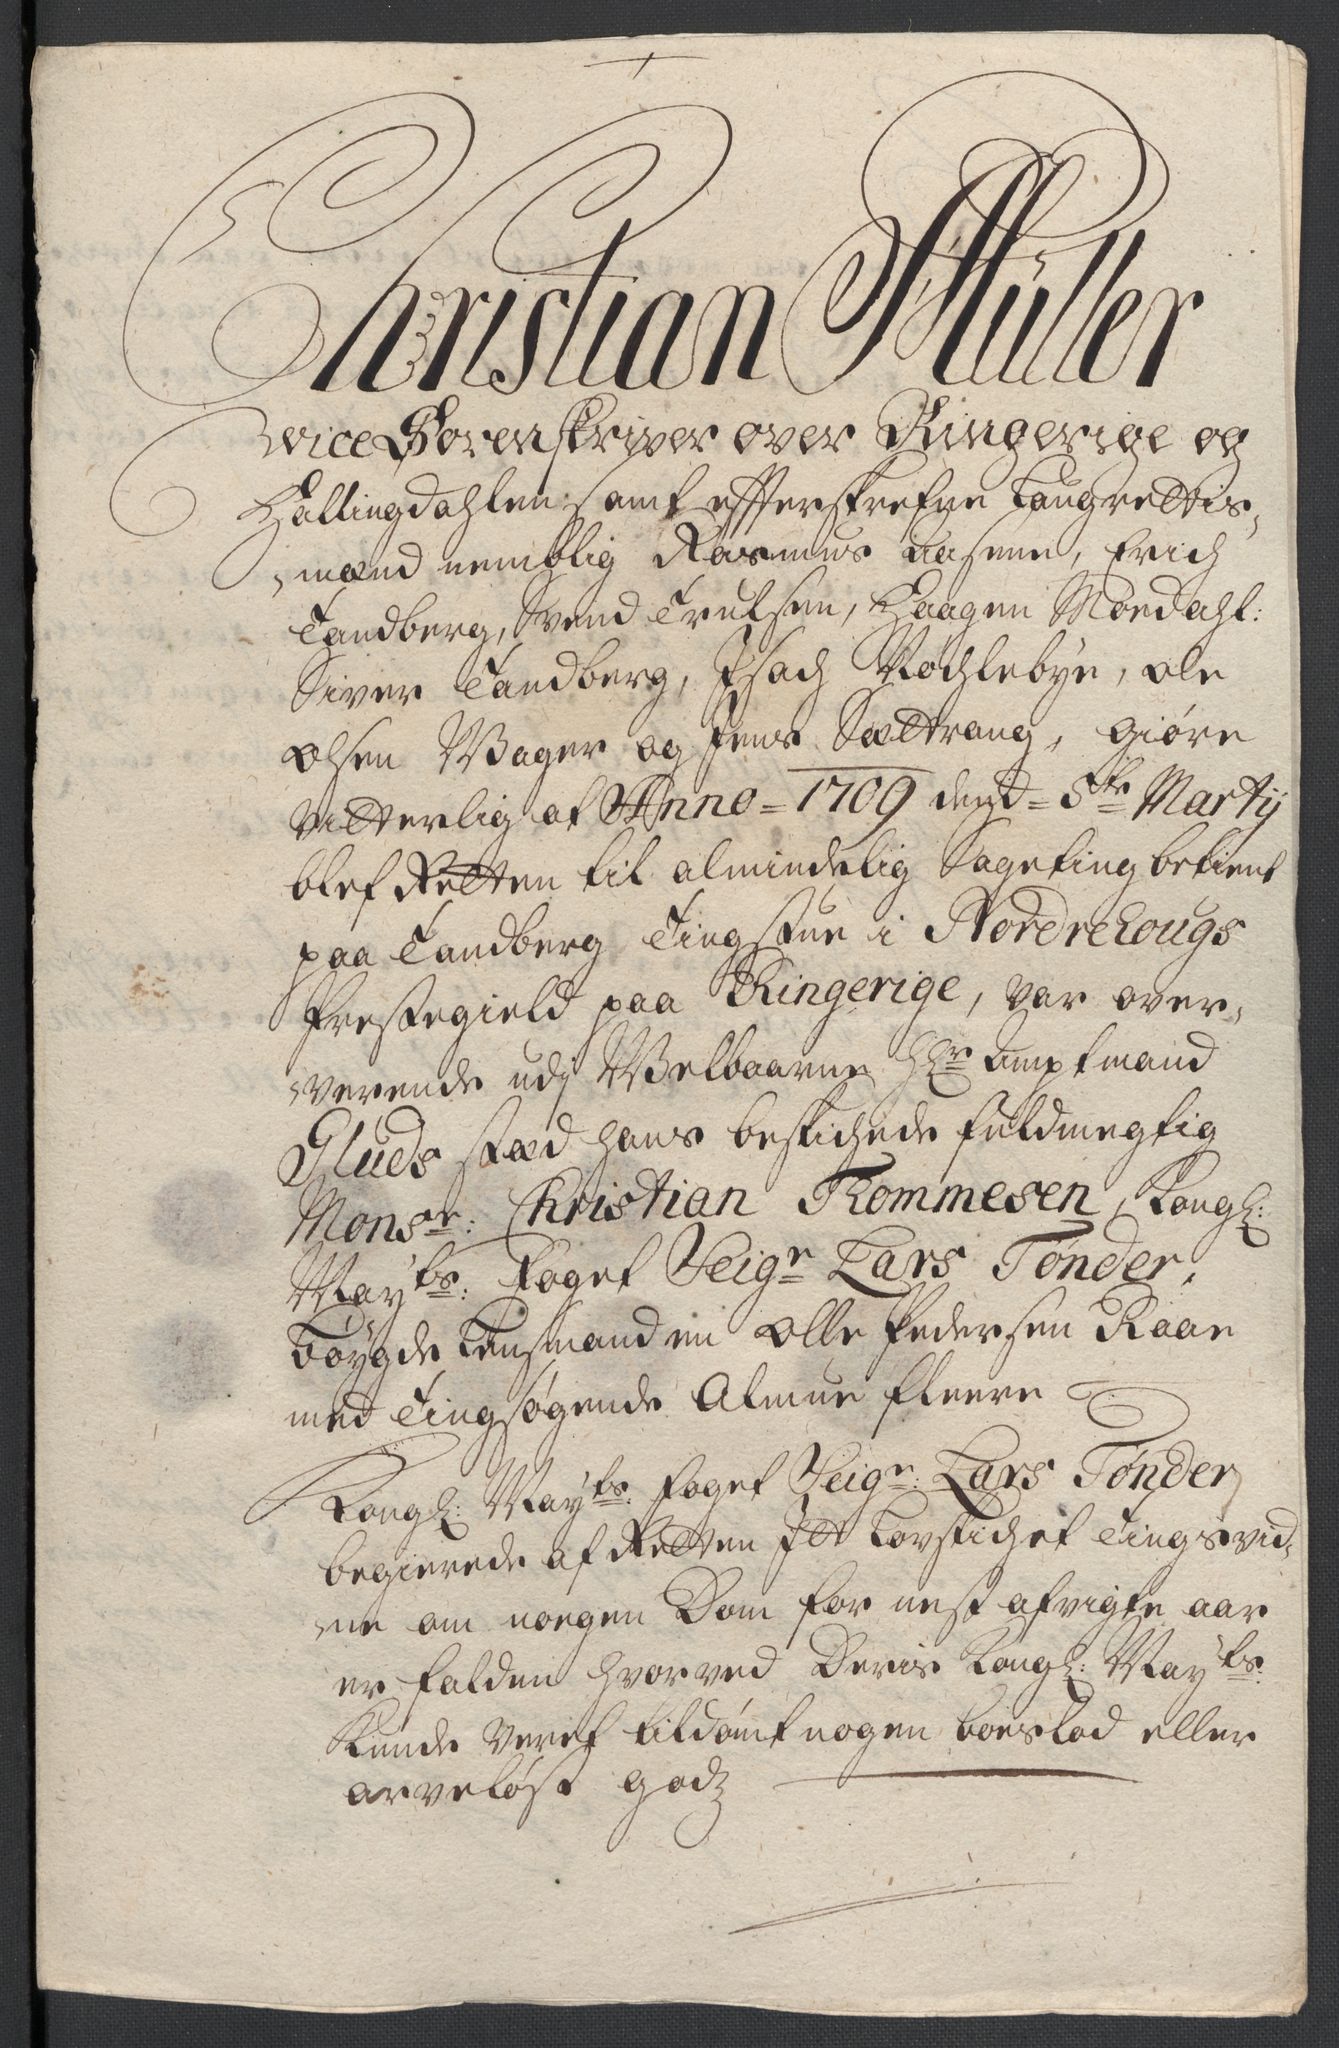 Christian Müller
vice Sorenskriver over Ringerige og
Hallingdahlen samt effterskrefne Laugrettis-
mænd nemblig Rasmus Aasene, Erich
Tandberg, Svend Trulsen, Haagen Moedahl:
Siver Tandberg, Isach Røchlebye, ole
olsen Wager og Jens Sættrang, giøre
vitterlig at Anno = 1709 dend = 5te Martij
blef Retten til almindelig Sageting betient
paa Tandberg Tingstue i Nordrehougs
Prestegield paa Ringerige, var over-
værende udj Welbaarne Hr Amptmand
Gluds sted hans beskichede fuldmegtig
Monsr: Christian Rommesen, Kongl:
Mayts: Foget Seigr Lars Tønder,
Bøygde Lensmanden olle Pedersen Raae
med Tingsøgende Almue fleere
Kongl: Mayts: foget Seigr: Lars Tønder
begierede af Retten Itt Lovskichet Tingsvid-
ne om noegen Dom for nest afvigte aar
er falden hvorved Deris Kongl: Mayts:
Kunde veret tildømt nogen boeslod eller
arveløst godz